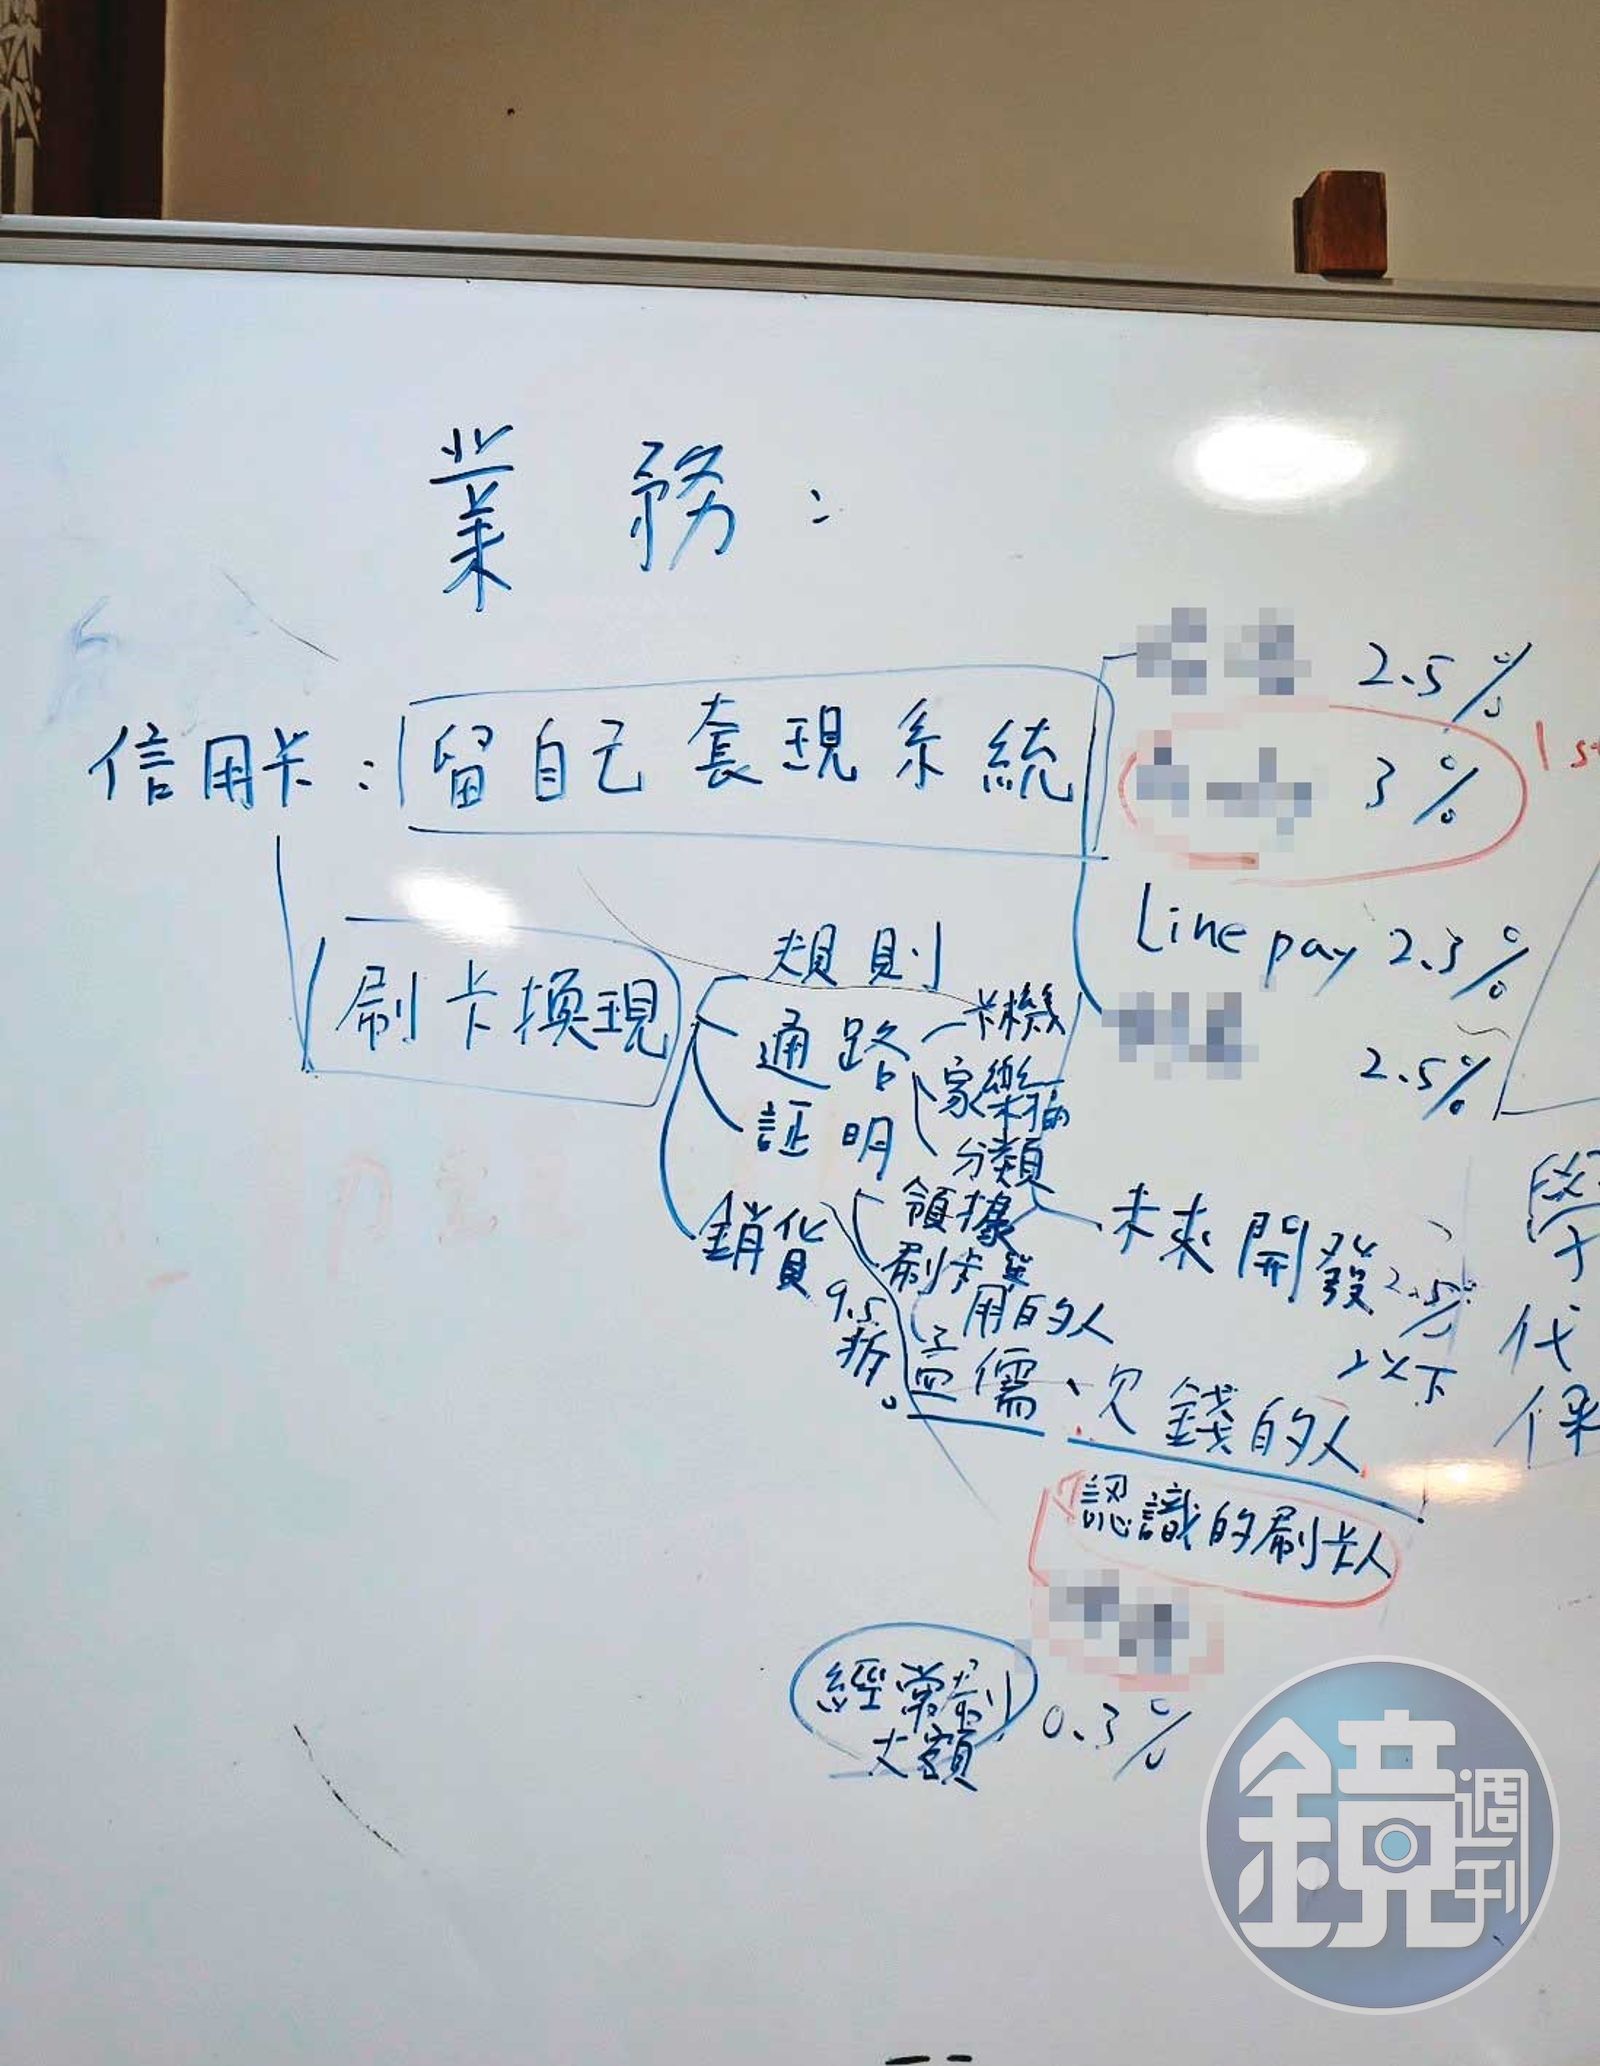 業務：
2.5%
信用卡：留自己套現系統
3%
1s
Line pay 2.3%
2.5%
刷卡換現
規則
通路
卡機
家樂福
分類
証明
未來開發
2.5%
以下
銷貨
9.5
折。
領據
刷卡機
用的人
孟儒、欠錢的人
認識的刷卡人
經常刷
大額
0.3%
學
代
保
鏡週刊